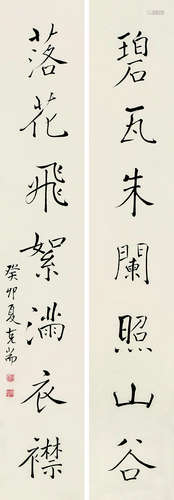 碧瓦朱闌照山谷
落花飛絮滿衣襟
癸卯夏克耑